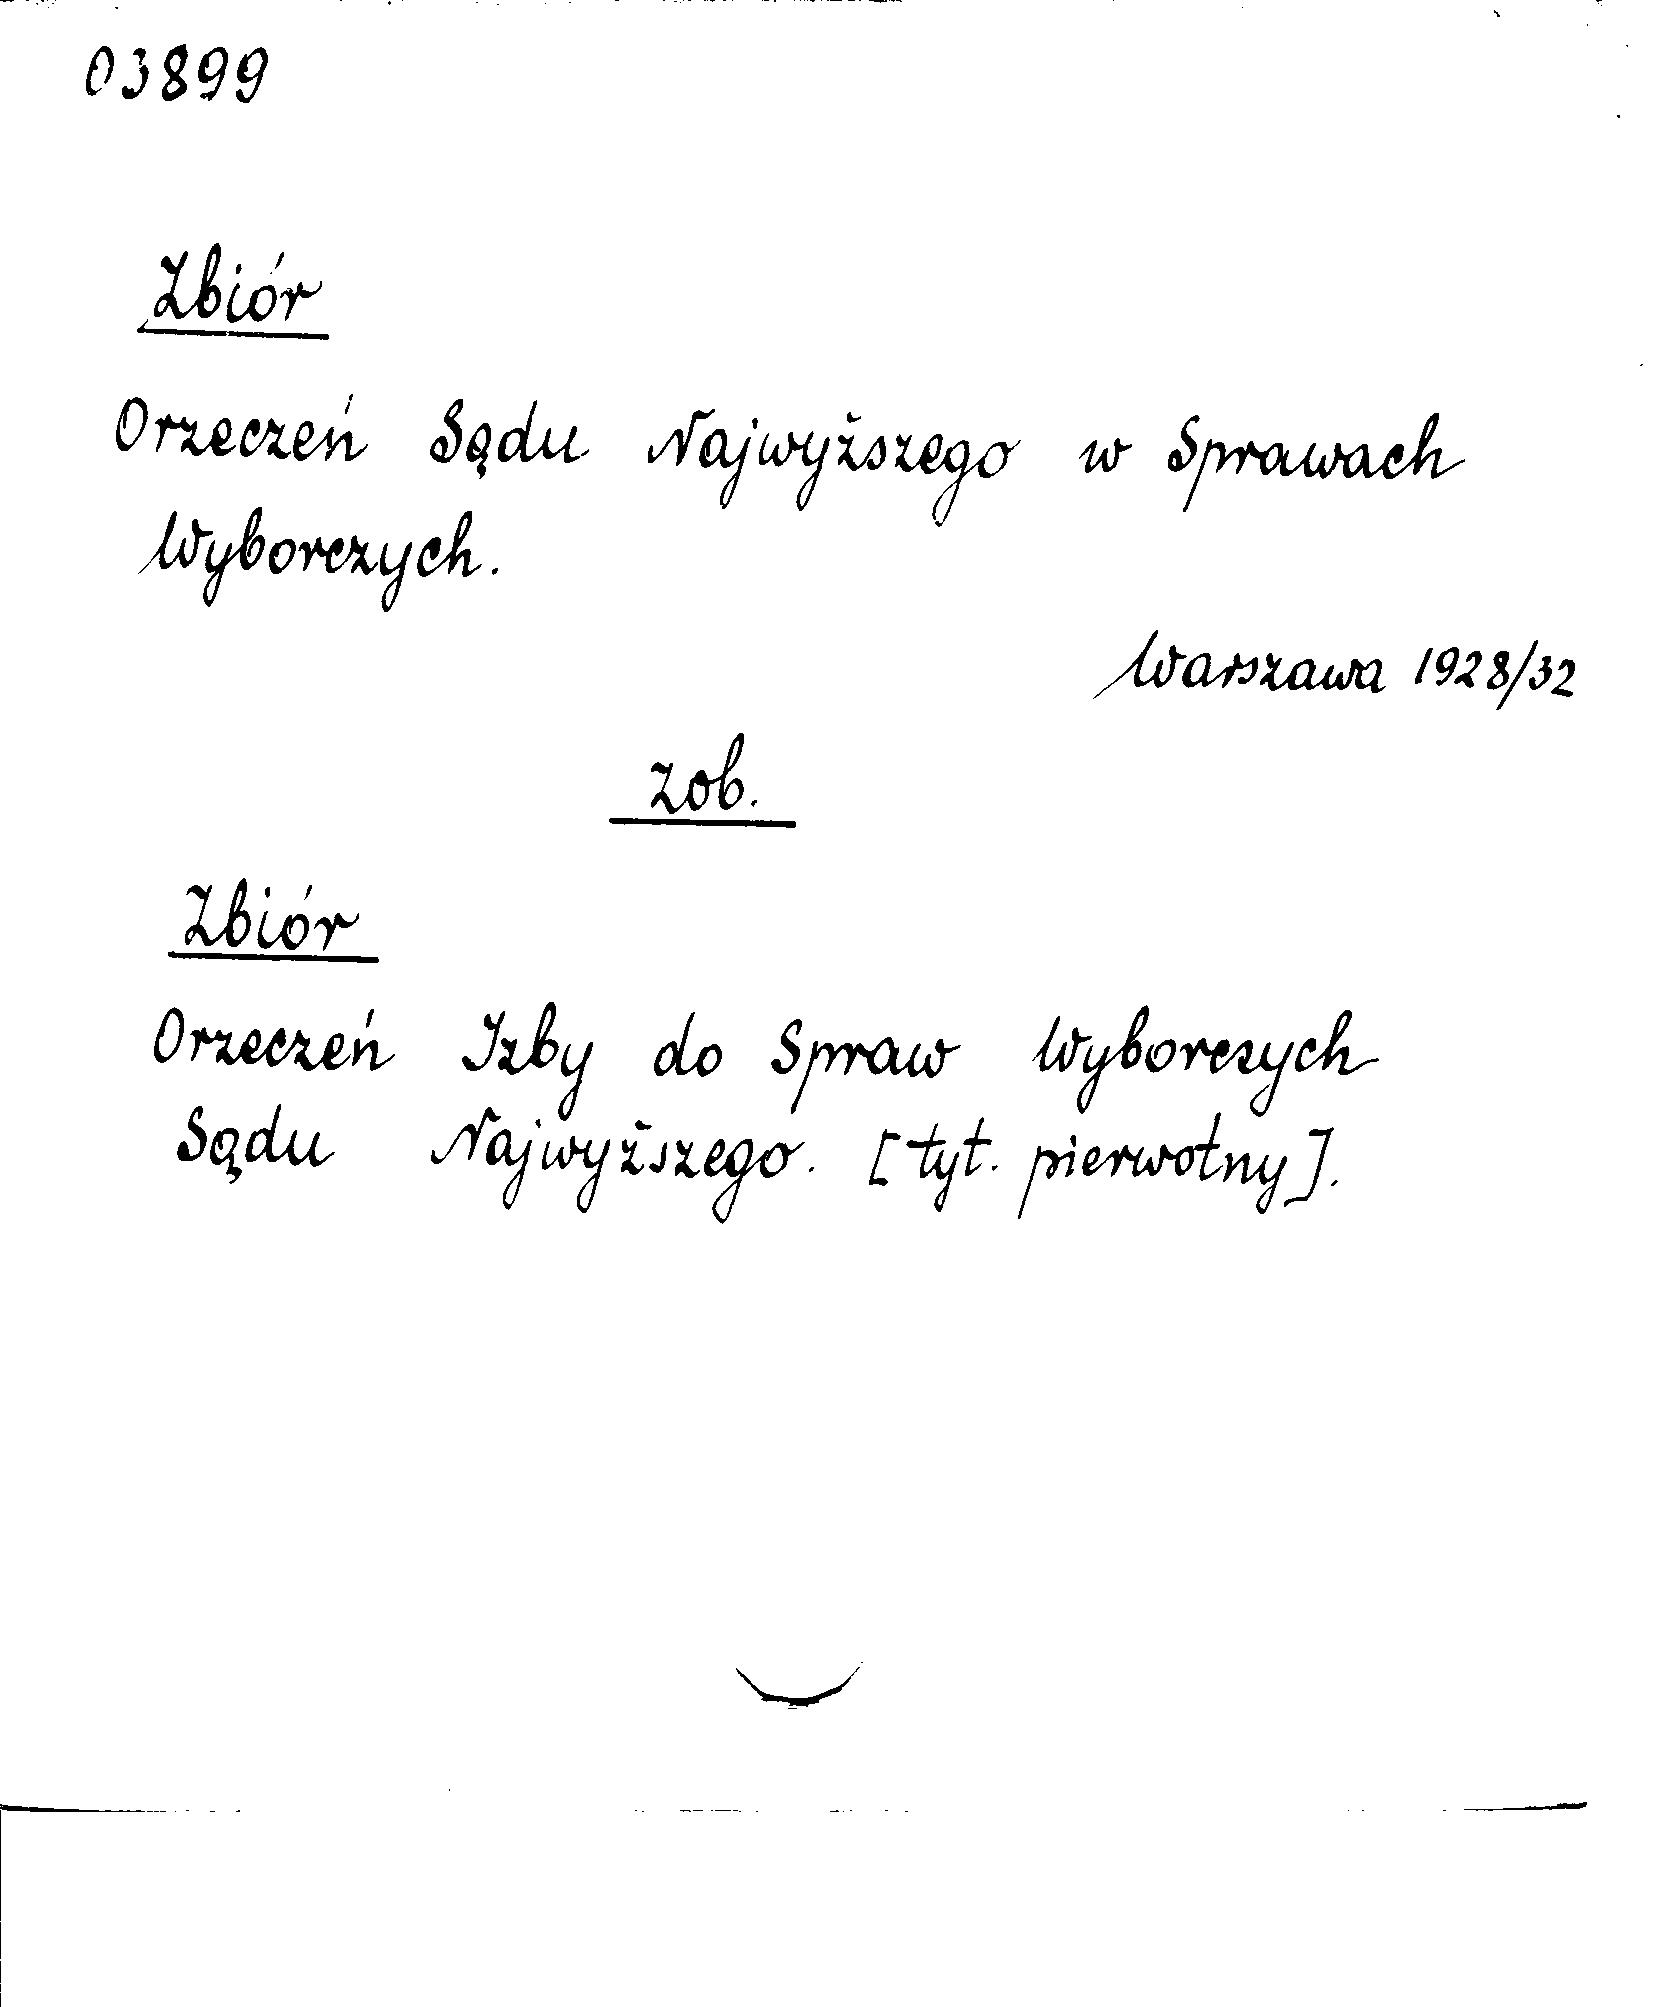 03899
Zbiór
Orzeczeń Sądu Najwyższego w Sprawach
Wyborczych.
Warszawa 1928/32
zob.
Zbiór
Orzeczeń Izby do Spraw Wyborczych
Sądu Najwyższego. [tyt. pierwotny].